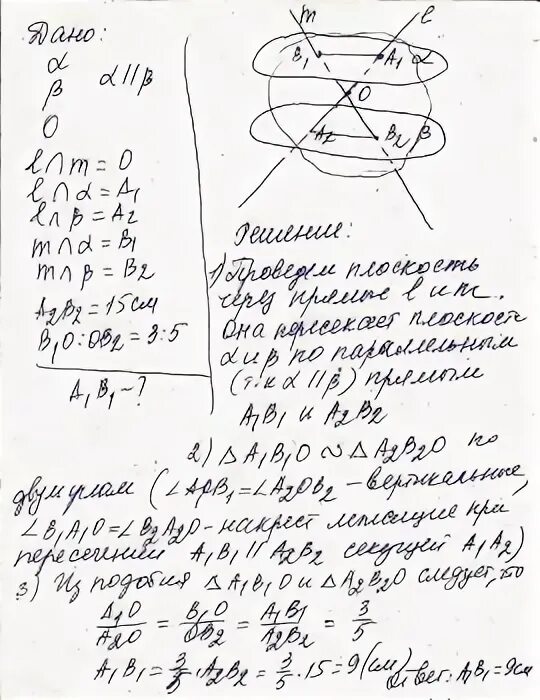 Дано:
α
β α||β
O
l∩m=O
l∩α=A₁
l∩β=A₂
m∩α=B₁
m∩β=B₂
A₂B₂=15см
B₁O:OB₂=3:5
A₁B₁-?
m l
B₁ A₁ α
O
A₂ B₂ β
Решение:
1) Проведем плоскость
через прямые l и m.
Она пересекает плоскости
α и β по параллельным
(т.к α||β) прямым
A₁B₁ и A₂B₂
2) △A₁B₁O ~ △A₂B₂O по
двум углам (∠A₁OB₁=∠A₂OB₂ - вертикальные,
∠B₁A₁O=∠B₂A₂O - накрест лежащие при
пересечении A₁B₁||A₂B₂ секущей A₁A₂)
3) Из подобия △A₁B₁O и △A₂B₂O следует, что
A₁O/A₂O = B₁O/OB₂ = A₁B₁/A₂B₂ = 3/5
A₁B₁ = 3/5 · A₂B₂ = 3/5 · 15 = 9 (см) Ответ: A₁B₁=9см